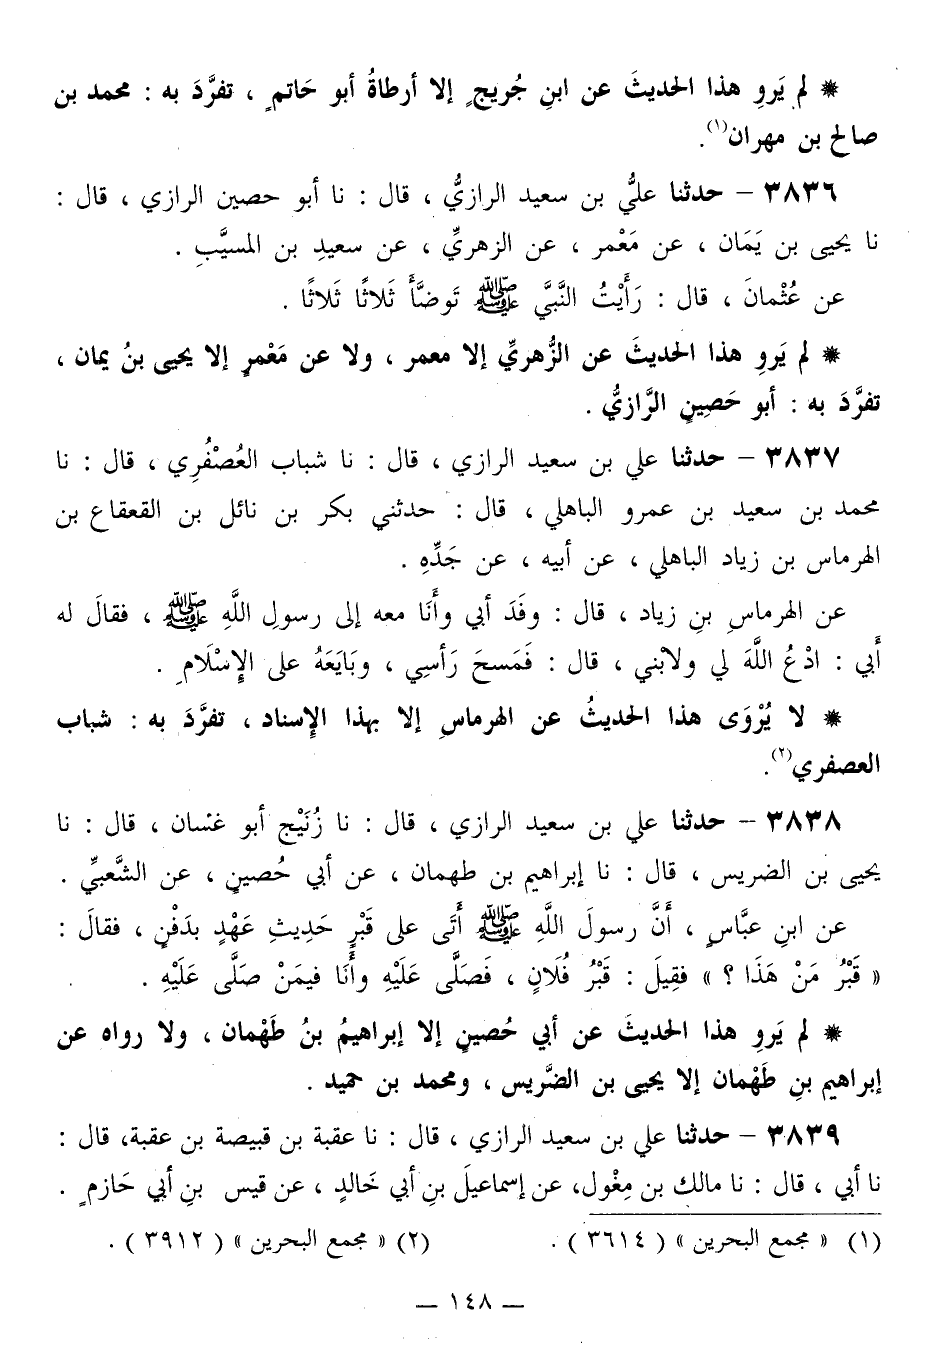 * لم يَروِ هذا الحديثَ عن ابنِ جُريجٍ إلا أرطاةُ أبو حَاتمٍ ، تفرَّدَ به : محمد بن
صالح بن مهران(١).
٣٨٣٦ – حدثنا عليُّ بن سعيد الرازيُّ ، قال : نا أبو حصين الرازي ، قال :
نا يحيى بن يَمَان ، عن مَعْمر ، عن الزهريِّ ، عن سعيدِ بن المسيَّبِ .
عن عُثْمانَ ، قال : رَأَيْتُ النَّبيَّ ﷺ تَوضَّأَ ثَلاثًا ثَلاثًا .
* لم يَروِ هذا الحديثَ عن الزُّهريِّ إلا معمر ، ولا عن مَعْمرٍ إلا يحيى بنُ يمان ،
تفرَّدَ به : أبو حَصِينٍ الرَّازيُّ .
٣٨٣٧ – حدثنا علي بن سعيد الرازي ، قال : نا شباب العُصْفُرِي ، قال : نا
محمد بن سعيد بن عمرو الباهلي ، قال : حدثني بكر بن نائل بن القعقاع بن
الهرماس بن زياد الباهلي ، عن أبيه ، عن جَدِّهِ .
عن الهرماسِ بنِ زياد ، قال : وفَدَ أبي وأَنَا معه إلى رسولِ اللَّهِ ﷺ ، فقالَ له
أَبي : ادْعُ اللَّهَ لي ولابْني ، قال : فَمَسحَ رَأسِي ، وبَايَعَهُ على الإِسْلَامِ .
* لا يُرْوَى هذا الحديثُ عن الهرماسِ إلا بهذا الإسناد ، تفرَّدَ به : شباب
العصفري(٢).
٣٨٣٨ – حدثنا علي بن سعيد الرازي ، قال : نا زُنَيْج أبو غسَّان ، قال : نا
يحيى بن الضريس ، قال : نا إبراهيم بن طهمان ، عن أبي حُصينٍ ، عن الشَّعبيِّ .
عن ابنِ عبَّاسٍ ، أَنَّ رسولَ اللَّهِ ﷺ أَتَى على قَبْرٍ حَدِيثِ عَهْدٍ بدَفْنٍ ، فقالَ :
« قَبْرُ مَنْ هَذَا ؟ » فقِيلَ : قَبْرُ فُلَانٍ ، فَصَلَّى عَلَيْهِ وأَنَا فيمَنْ صَلَّى عَلَيْهِ .
* لم يَروِ هذا الحديثَ عن أبي حُصينٍ إلا إبراهيمُ بنُ طَهْمان ، ولا رواه عن
إبراهيم بنِ طَهْمان إلا يحيى بن الضَّريس ، ومحمد بن حميد .
٣٨٣٩ – حدثنا علي بن سعيد الرازي ، قال : نا عقبة بن قبيصة بن عقبة، قال :
نا أبي ، قال : نا مالك بن مِغْول، عن إسماعيلَ بنِ أبي خَالدٍ ، عن قيس بنِ أبي حَازمٍ .
(١) « مجمع البحرين » ( ٣٦١٤ ) . (٢) « مجمع البحرين » ( ٣٩١٢ ) .
– ١٤٨ –